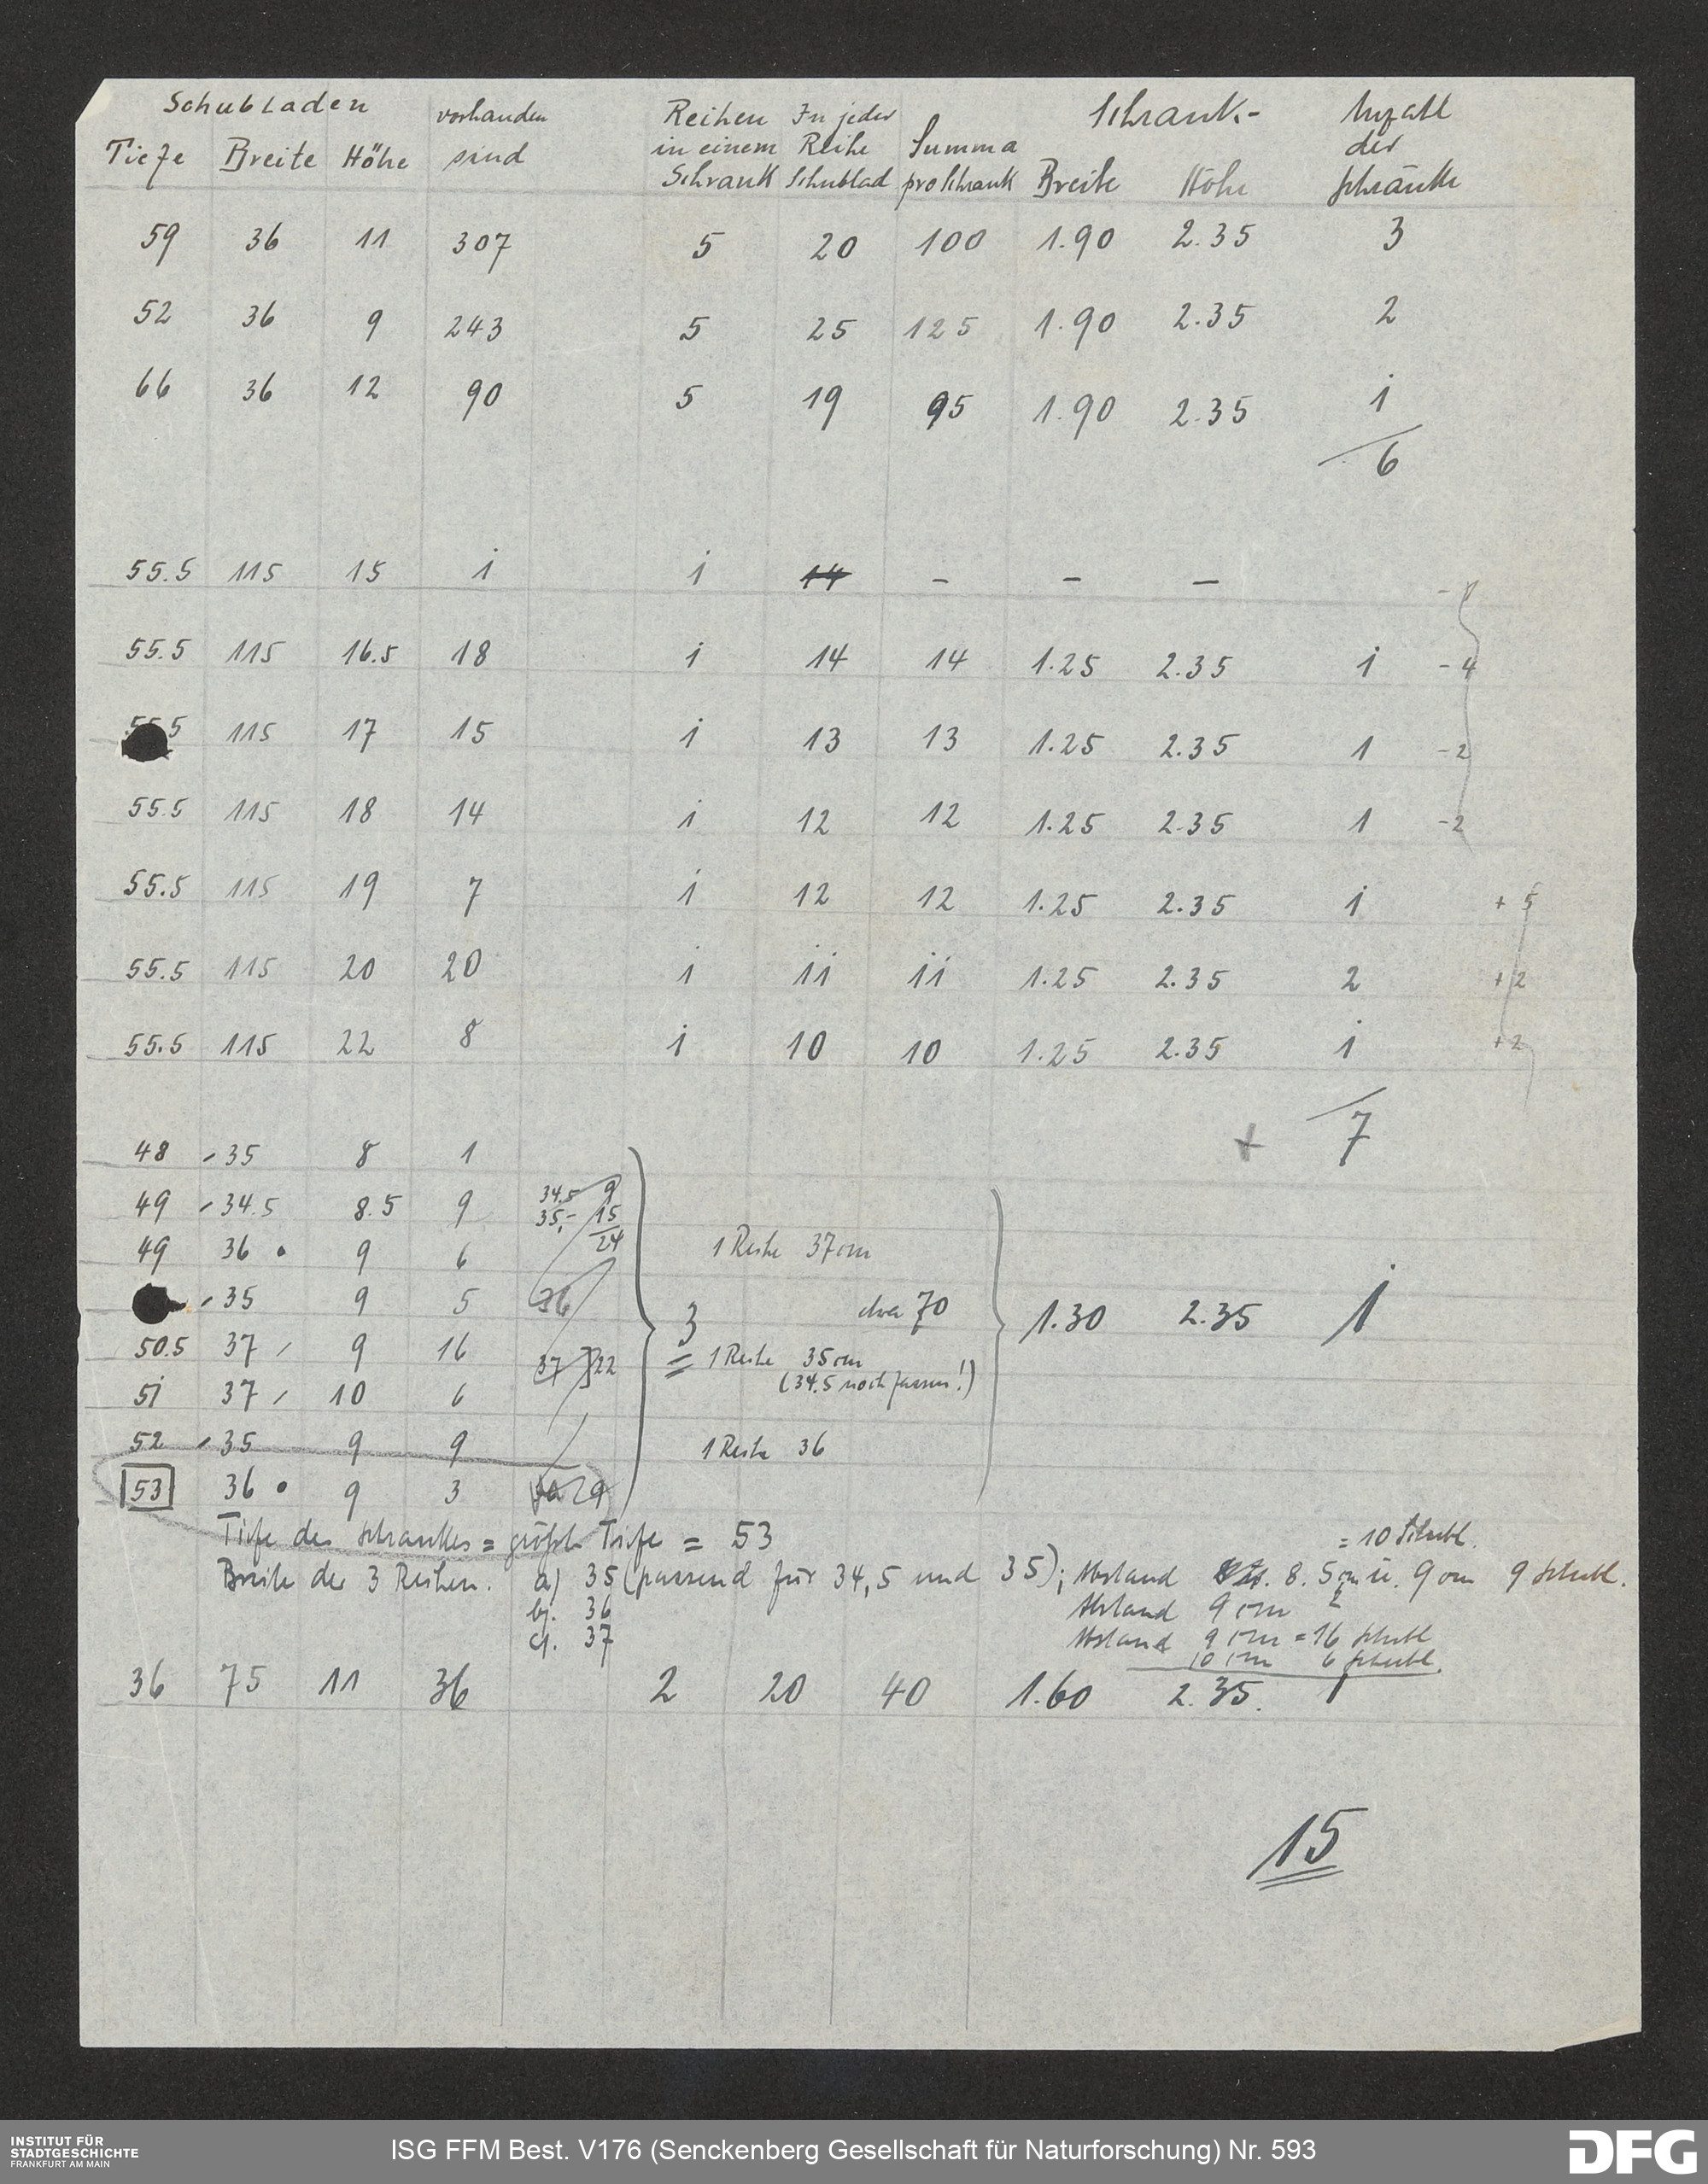 Schubladen vorhanden Reihen In jeder Schrank- Anzahl
in einem Reihe Summa der
Tiefe Breite Höhe sind Schrank Schublad pro Schrank Breite Höhe Schränke
59 36 11 307 5 20 100 1.90 2.35 3
52 36 9 243 5 25 125 1.90 2.35 2
66 36 12 90 5 19 95 1.90 2.35 1
6
55.5 115 15 1 1 14 - - -
55.5 115 16.5 18 1 14 14 1.25 2.35 1 - 4
55.5 115 17 15 1 13 13 1.25 2.35 1 - 2
55.5 115 18 14 1 12 12 1.25 2.35 1 - 2
55.5 115 19 7 1 12 12 1.25 2.35 1 + 5
55.5 115 20 20 1 11 11 1.25 2.35 2 + 2
55.5 115 22 8 1 10 10 1.25 2.35 1 + 2
+ 7
48 35 8 1
49 34.5 8.5 9 34.5 9
35,- 15
24
49 36 9 6 1 Reihe 37 cm
35 9 5 36 3 etwa 70 1.30 2.35 1
50.5 37 9 16 37 22 1 Reihe 35 cm
(34.5 noch passen!)
51 37 10 6
52 35 9 9 1 Reihe 36
53 36 9 3
Tiefe des Schrankes = größte Tiefe = 53
= 10 Schubl.
Breite der 3 Reihen. a) 35 (passend für 34,5 und 35); Abstand 8.5 cm u. 9 cm 9 Schubl.
b). 36 Abstand 9 cm
c). 37 Abstand 9 cm = 16 Schubl
10 cm 6 Schubl.
36 75 11 36 2 20 40 1.60 2.35. 1
15
INSTITUT FÜR
STADTGESCHICHTE
FRANKFURT AM MAIN
ISG FFM Best. V176 (Senckenberg Gesellschaft für Naturforschung) Nr. 593
DFG